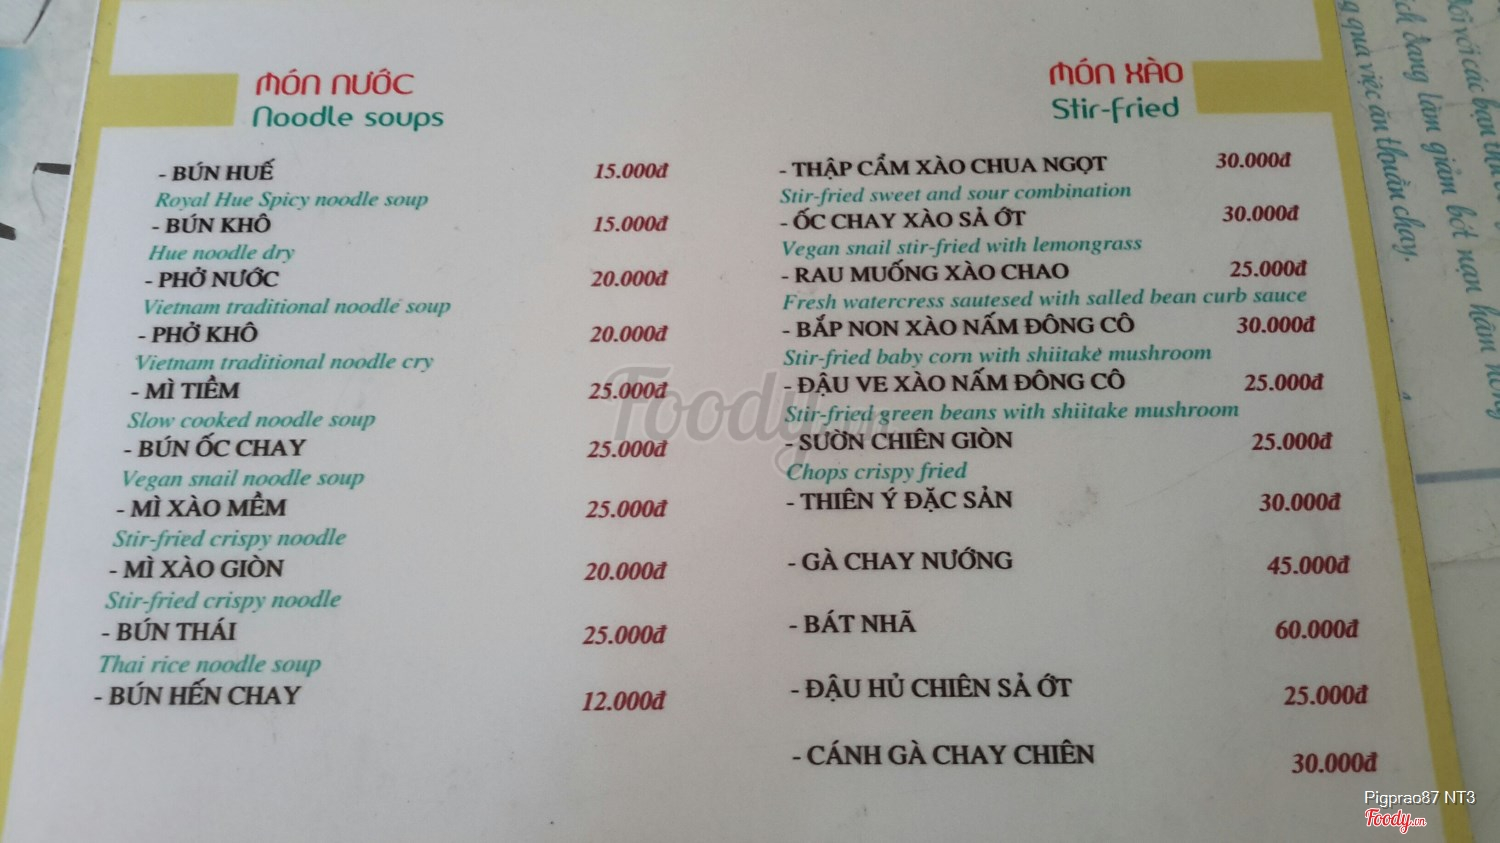 MÓN NƯỚC
Noodle soups
- BÚN HUẾ 15.000đ
Royal Hue Spicy noodle soup
- BÚN KHÔ 15.000đ
Hue noodle dry
- PHỞ NƯỚC 20.000đ
Vietnam traditional noodle soup
- PHỞ KHÔ 20.000đ
Vietnam traditional noodle cry
- MÌ TIỀM 25.000đ
Slow cooked noodle soup
- BÚN ỐC CHAY 25.000đ
Vegan snail noodle soup
- MÌ XÀO MỀM 25.000đ
Stir-fried crispy noodle
- MÌ XÀO GIÒN 20.000đ
Stir-fried crispy noodle
- BÚN THÁI 25.000đ
Thai rice noodle soup
- BÚN HẾN CHAY 12.000đ
MÓN XÀO
Stir-fried
- THẬP CẨM XÀO CHUA NGỌT 30.000đ
Stir-fried sweet and sour combination
- ỐC CHAY XÀO SẢ ỚT 30.000đ
Vegan snail stir-fried with lemongrass
- RAU MUỐNG XÀO CHAO 25.000đ
Fresh watercress sautesed with salled bean curb sauce
- BẮP NON XÀO NẤM ĐÔNG CÔ 30.000đ
Stir-fried baby corn with shiitake mushroom
- ĐẬU VE XÀO NẤM ĐÔNG CÔ 25.000đ
Stir-fried green beans with shiitake mushroom
- SƯỜN CHIÊN GIÒN 25.000đ
Chops crispy fried
- THIÊN Ý ĐẶC SẢN 30.000đ
- GÀ CHAY NƯỚNG 45.000đ
- BÁT NHÃ 60.000đ
- ĐẬU HỦ CHIÊN SẢ ỚT 25.000đ
- CÁNH GÀ CHAY CHIÊN 30.000đ
Foody.vn
đối với các bạn
ích đang làm giảm bớt nạn hâm nóng
g qua việc ăn thuần chay.
Pigprao87 NT3
Foody.vn